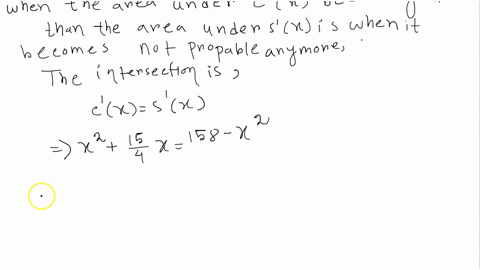 when the area under
than the area under s'(x) is when it
becomes not propable anymore,
The intersection is,
c'(x) = s'(x)
⇒ x² + 15/4 x = 158 - x²